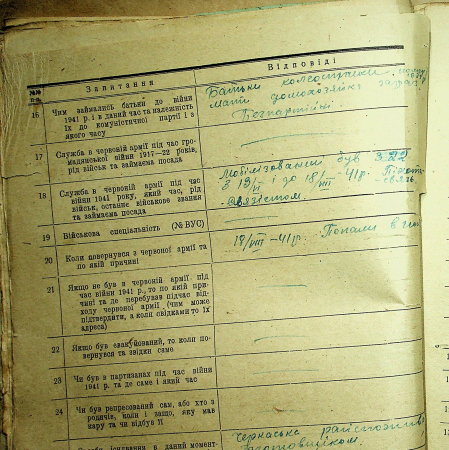 №№ п-п. Запитання Відповіді
16 Чим займались батьки до війни
1941 р. і в даний час та належність
їх до комуністичної партії і з
якого часу
Батьки колгоспники,
мати домохозяйка зараз
Безпартійні
17 Служба в червоній армії під час гро-
мадянської війни 1917—22 років,
рід військ та займаєма посада
18 Служба в червоній армії під час
війни 1941 року, який час, рід
військ, останнє військове звання
та займаєма посада
Мобілізований був
з 19/VI і до 18/VIII -41р.
связістом.
19 Військова спеціяльність (№ ВУС)
20 Коли повернувся з червоної армії та
по якій причині
18/VIII-41р. Попали в
21 Якщо не був в червоній армії під
час війни 1941 р., то по якій при-
чині та де перебував підчас від-
ходу червоної армії (чим може
підтвердити, а коли свідками то їх
адреса)
22 Якщо був евакуйований, то коли по-
вернувся та звідки саме
23 Чи був в партизанах під час війни
1941 р. та де саме і який час
24 Чи був репресований сам, або хто з
родичів, коли і защо, яку мав
кару та чи відбув її
в даний момент
Черкаське